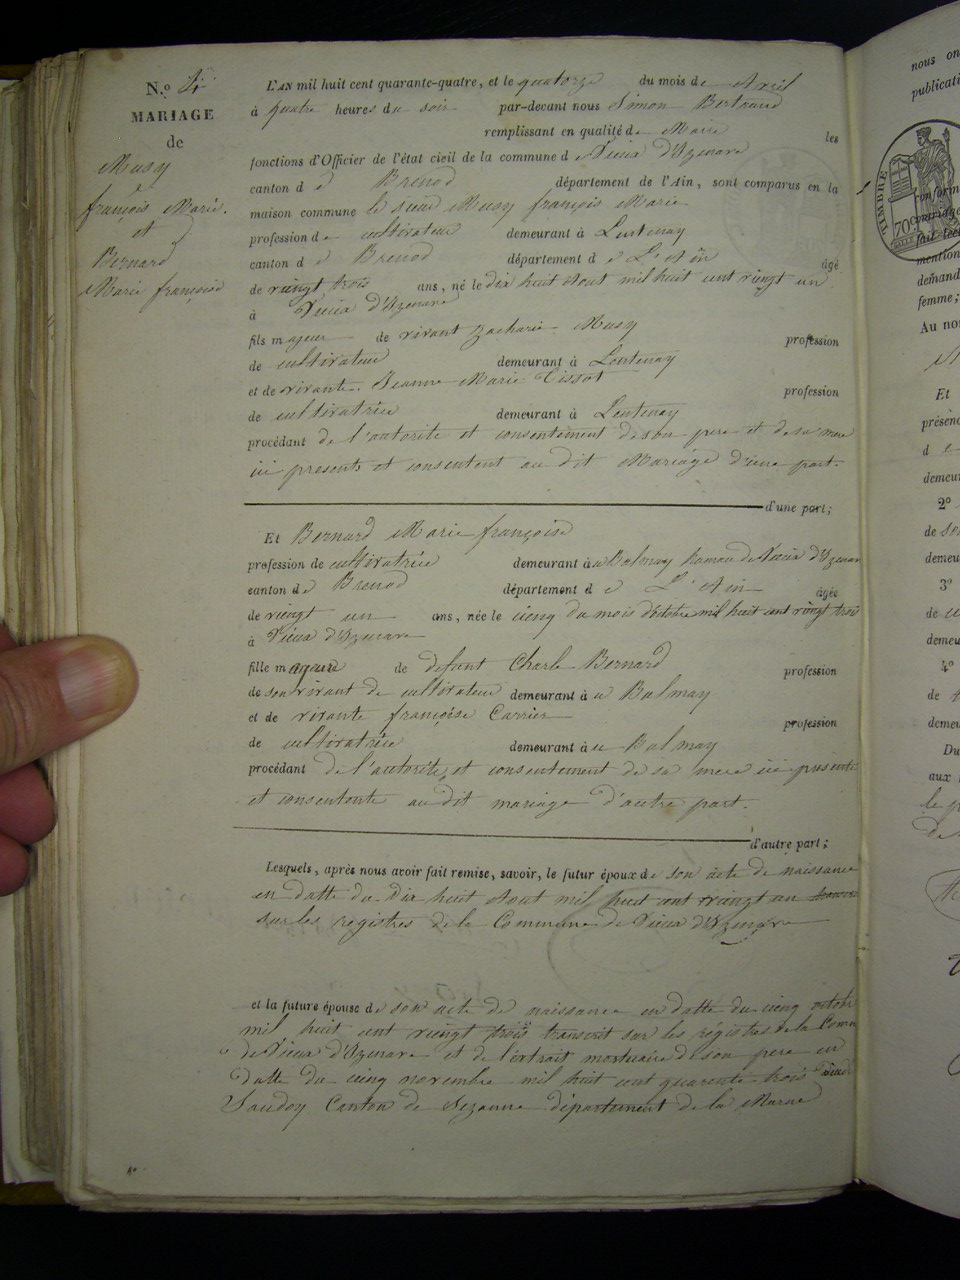 N.o 4
MARIAGE
de
Musy
françois Marie.
et
Bernard
Marie françoise
L'AN mil huit cent quarante-quatre, et le quatorze du mois de Avril
à quatre heures du soir par-devant nous Simon Bertrand
remplissant en qualité de Maire les
fonctions d'Officier de l'état civil de la commune de Vieux d'Yzenave
canton de Brenod département de l'Ain, sont comparus en la
maison commune le sieur Musy françois Marie
profession de cultivateur demeurant à Lentenay
canton de Brenod département de L'Ain âgé
de veingt trois ans, né le dix huit Aout mil huit cent veingt un
à Vieux d'Yzenave
fils majeur de vivant Zacharie Musy profession
de cultivateur demeurant à Lentenay
et de vivante Jeanne Marie Tissot profession
de cultivatrice demeurant à Lentenay
procédant de l'autorité et consentement de son pere et de sa mere
ici presents et consentent au dit Mariage d'une part.
d'une part;
Et Bernard Marie françoise
profession de cultivatrice demeurant à Balmay hameau de Vieux d'Yzenave
canton de Brenod département de L'Ain âgée
de veingt un ans, née le cinq du mois d'octobre mil huit cent veingt trois
à Vieux d'Yzenave
fille mageure de defunt Charle Bernard profession
de son vivant de cultivateur demeurant à Balmay
et de vivante françoise Carrier profession
de cultivatrice demeurant à Balmay
procédant de l'autorité et consentement de sa mere ici presente
et consentente au dit mariage d'autre part.
d'autre part;
Lesquels, après nous avoir fait remise, savoir, le futur époux de son acte de naissance
en datte du dix huit Aout mil huit cent veingt un
sur les registres de la Commune de Vieux d'Yzenave
et la future épouse de son acte de naissance en datte du cinq octobre
mil huit cent veingt trois transcrit sur les régistres de la Comm
de Vieux d'Yzenave et de l'extrait mortuaire de son pere en
datte du cinq novembre mil huit cent quarente trois
Saudoy Canton de Sezanne département de la Marne
4o
nous on
publicati
TIMBRE
70c
conform
mention
demand
femme;
Au no
Et
présenc
d
demeur
2o
de
demeu
3o
de
demeu
4o
de
demeu
Du
aux
le
de